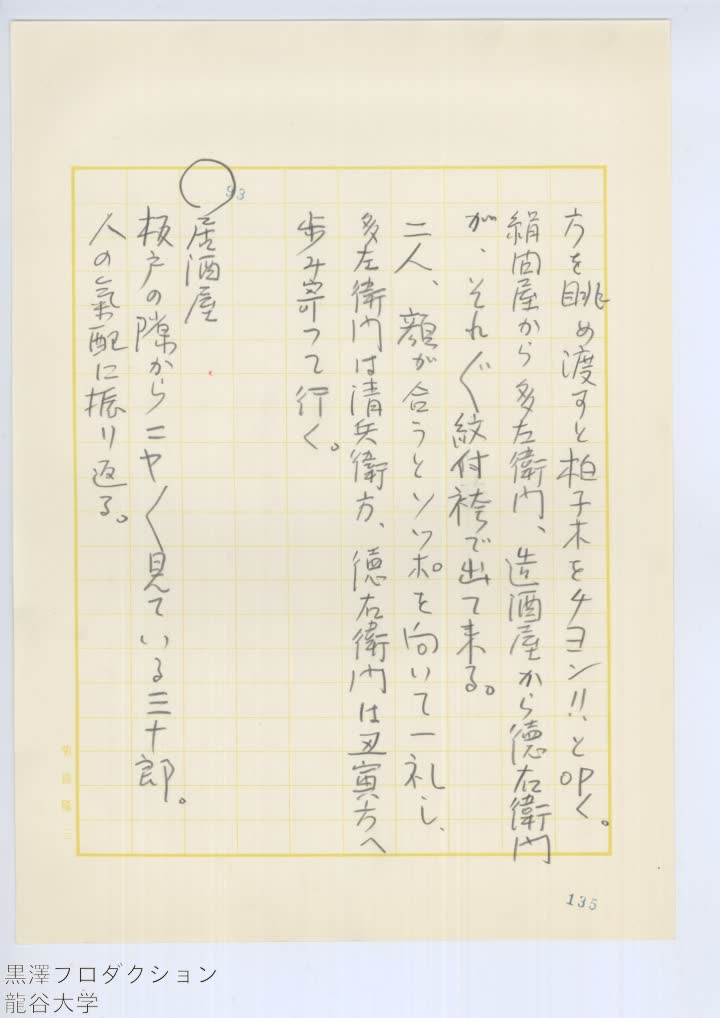 方を眺め渡すと柏子木をチヨン!!と叩く。
絹問屋から多左衛門、造酒屋から徳右衛門
が、それ〲紋付袴で出て来る。
二人、顔が合うとソツポを向いて一礼し、
多左衛門は清兵衛方、徳右衛門は丑寅方へ
歩み寄つて行く。
93
居酒屋
板戸の隙からニヤ〱見ている三十郎。
人の氣配に振り返る。
135
黒澤プロダクション
龍谷大学